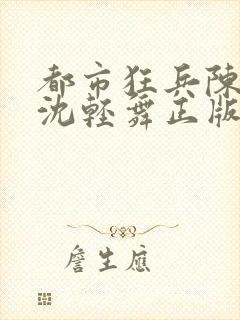 都市狂兵陳
沈輕舞正版
詹生應